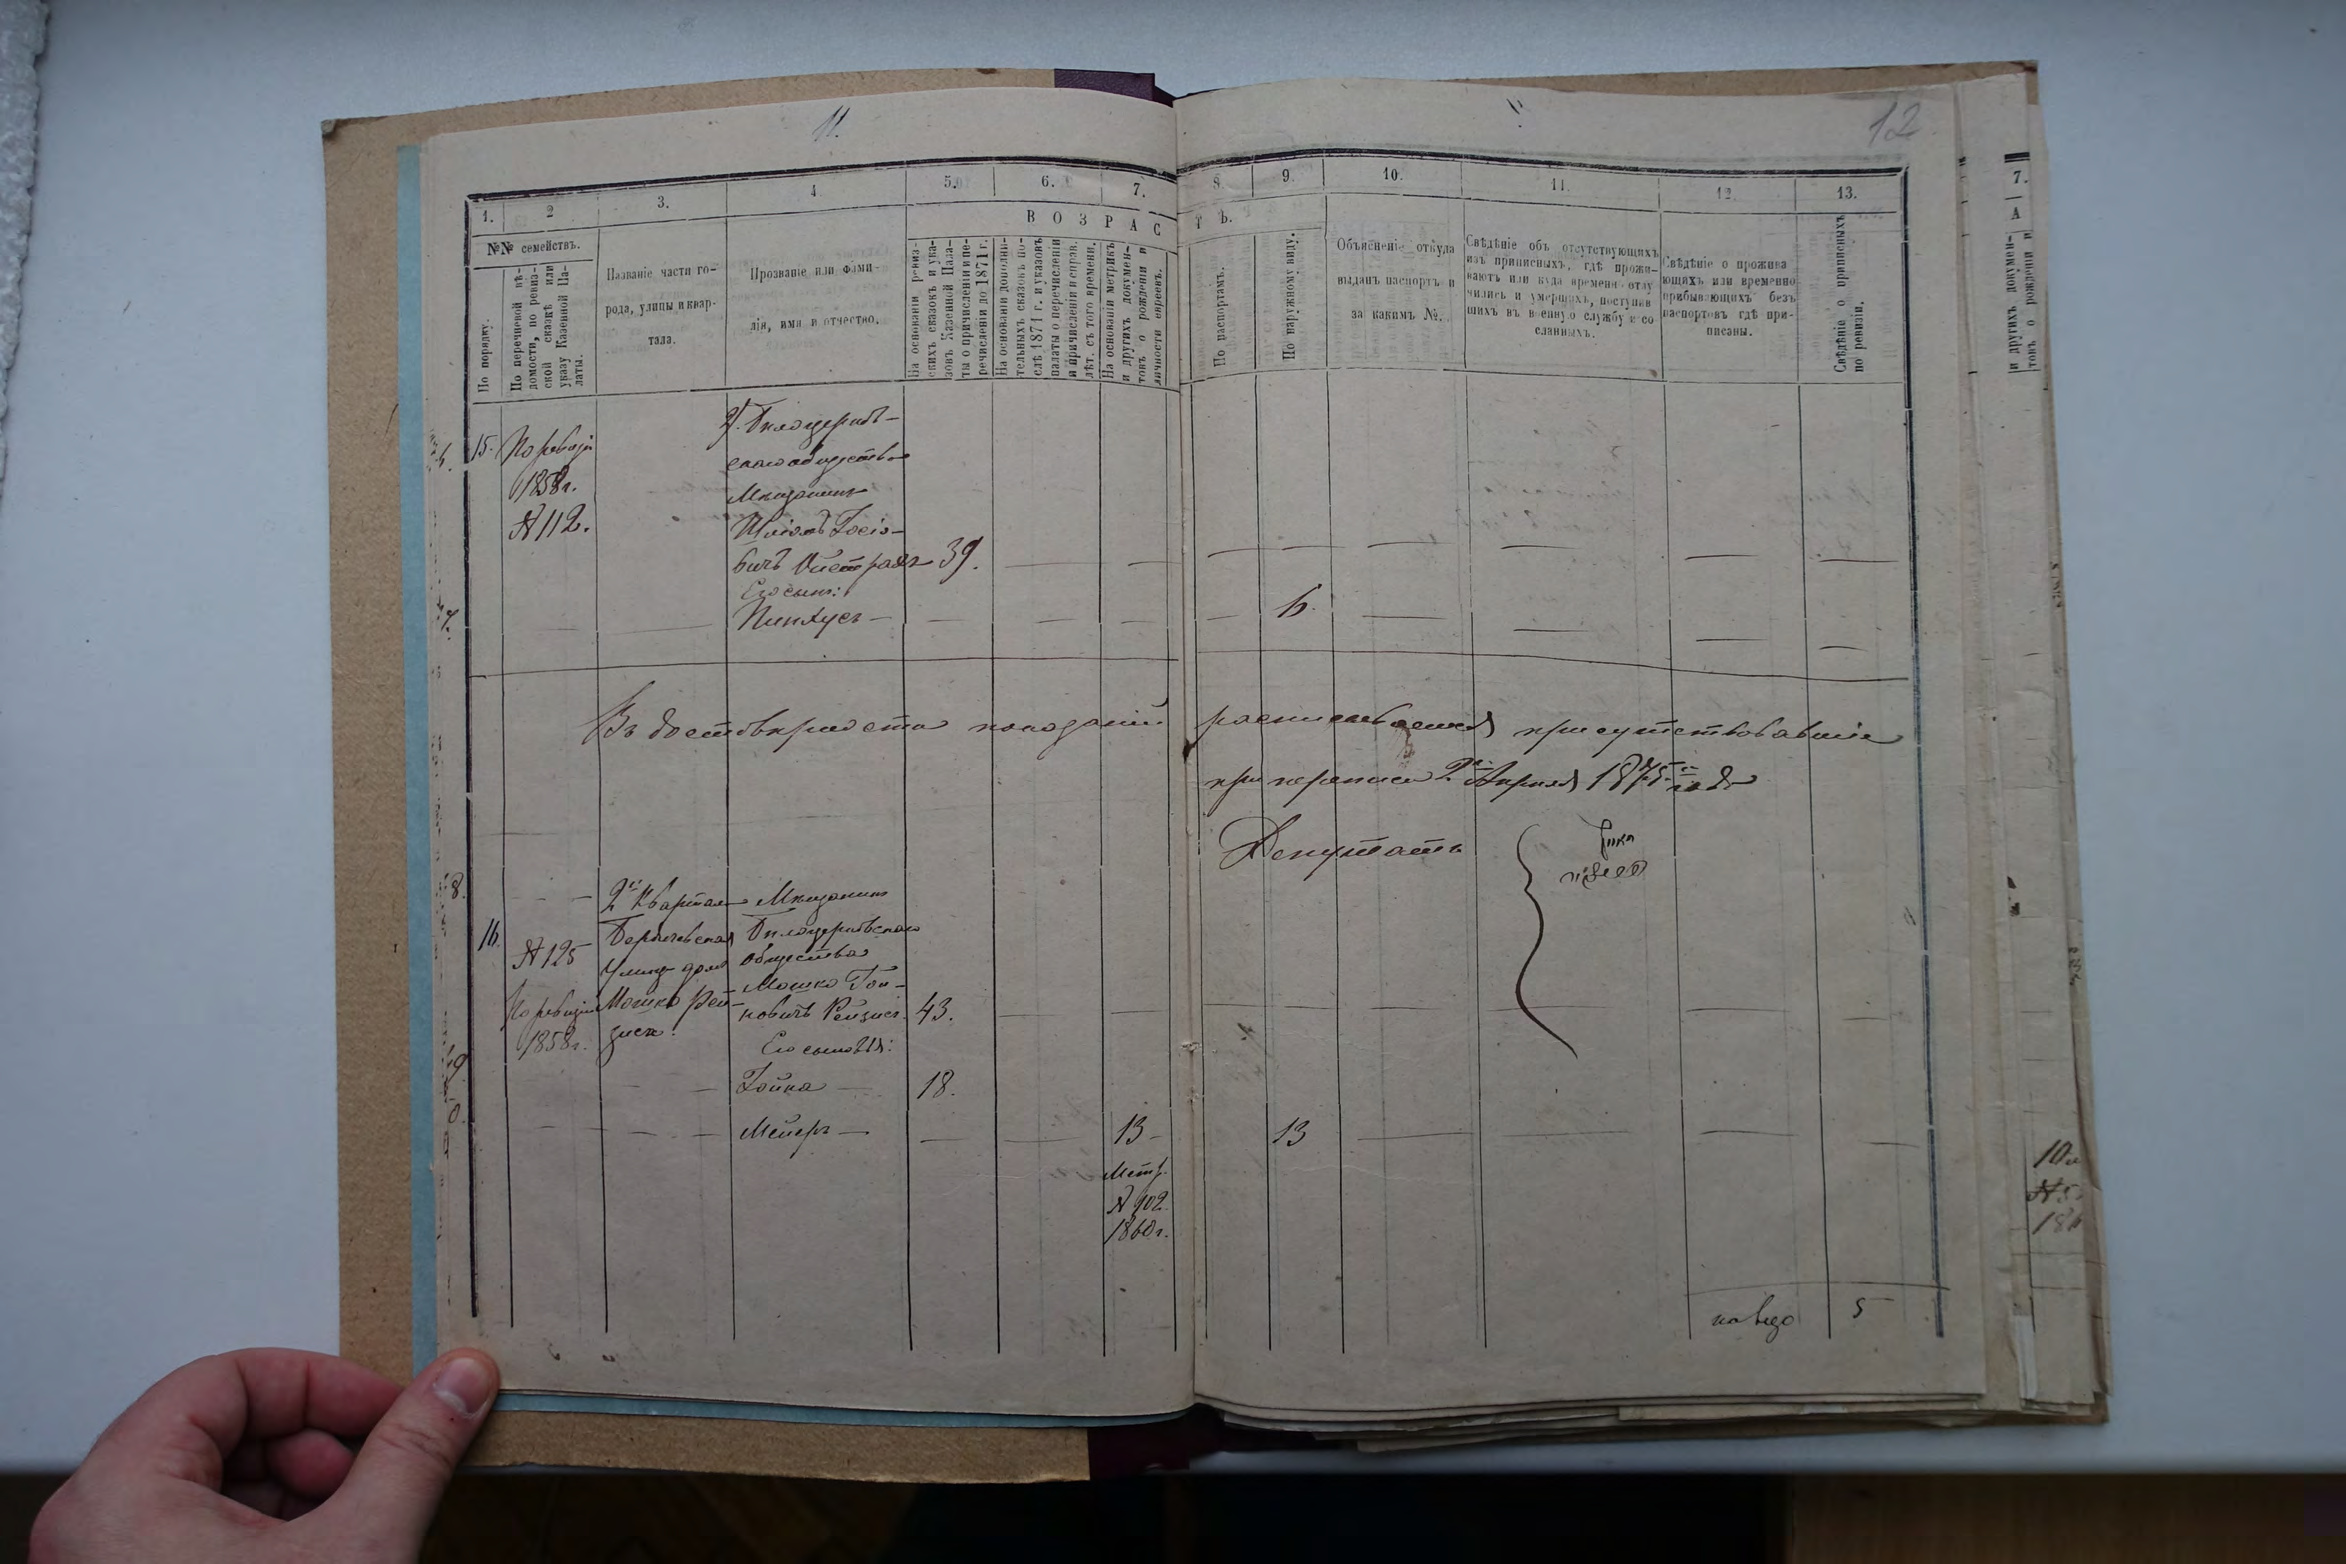 11.
12
1.
2
3.
4.
5.
6.
7.
8.
9.
10.
11.
12.
13.
7.
В О З Р А С
Т Ъ.
А
№№ семействъ.
По порядку.
По перечневой вѣ-
домости, по ревиз-
ской сказкѣ или
указу Казенной Па-
латы.
Названіе части го-
рода, улицы и квар-
тала.
Прозваніе или фами-
лія, имя и отчество.
На основаніи ревиз-
скихъ сказокъ и ука-
зовъ Казенной Пала-
ты о причисленіи и пе-
речисленіи до 1871 г.
На основаніи дополни-
тельныхъ сказокъ по-
слѣ 1871 г. и указовъ
палаты о перечисленіи
и причисленіи и справ.
лѣт. съ того времени.
На основаніи метрикъ
и другихъ докумен-
товъ о рожденіи и
личности евреевъ.
По паспортамъ.
По наружному виду.
Объясненіе откуда
выданъ паспортъ и
за какимъ №.
Свѣдѣніе объ отсутствующихъ
изъ приписныхъ, гдѣ прожи-
ваютъ или куда временн. отлу
чились и умершихъ, поступив
шихъ въ военную службу и со
сланныхъ.
Свѣдѣніе о прожива
ющихъ или временно
прибывающихъ безъ
паспортовъ гдѣ при-
писаны.
Свѣдѣніе о приписныхъ
по ревизіи.
и другихъ докумен-
товъ о рожденіи и
15. По ревизіи
1858 г.
№ 112.
Бѣлоцерков-
скаго общества
Мѣщанинъ
Іосіо-
вичъ 39.
Его сынъ:
Пинхусъ 6.
Въ достовѣрности показаній росписываемся присутствовавшіе
при переписи 2го Апреля 1875го года
Депутатъ
16.
№ 125
По ревизіи
1858 г.
2й Кварталъ
Бердичевская
улица домъ
Мошко Рей-
зиса.
Мѣщанинъ
Бѣлоцерковскаго
общества
Мошко Гой-
ковичъ Рейзисъ 43.
Его сыновья:
Гойка 18.
Мейеръ 13 13
Метр.
№ 102.
1860 г.
5
10